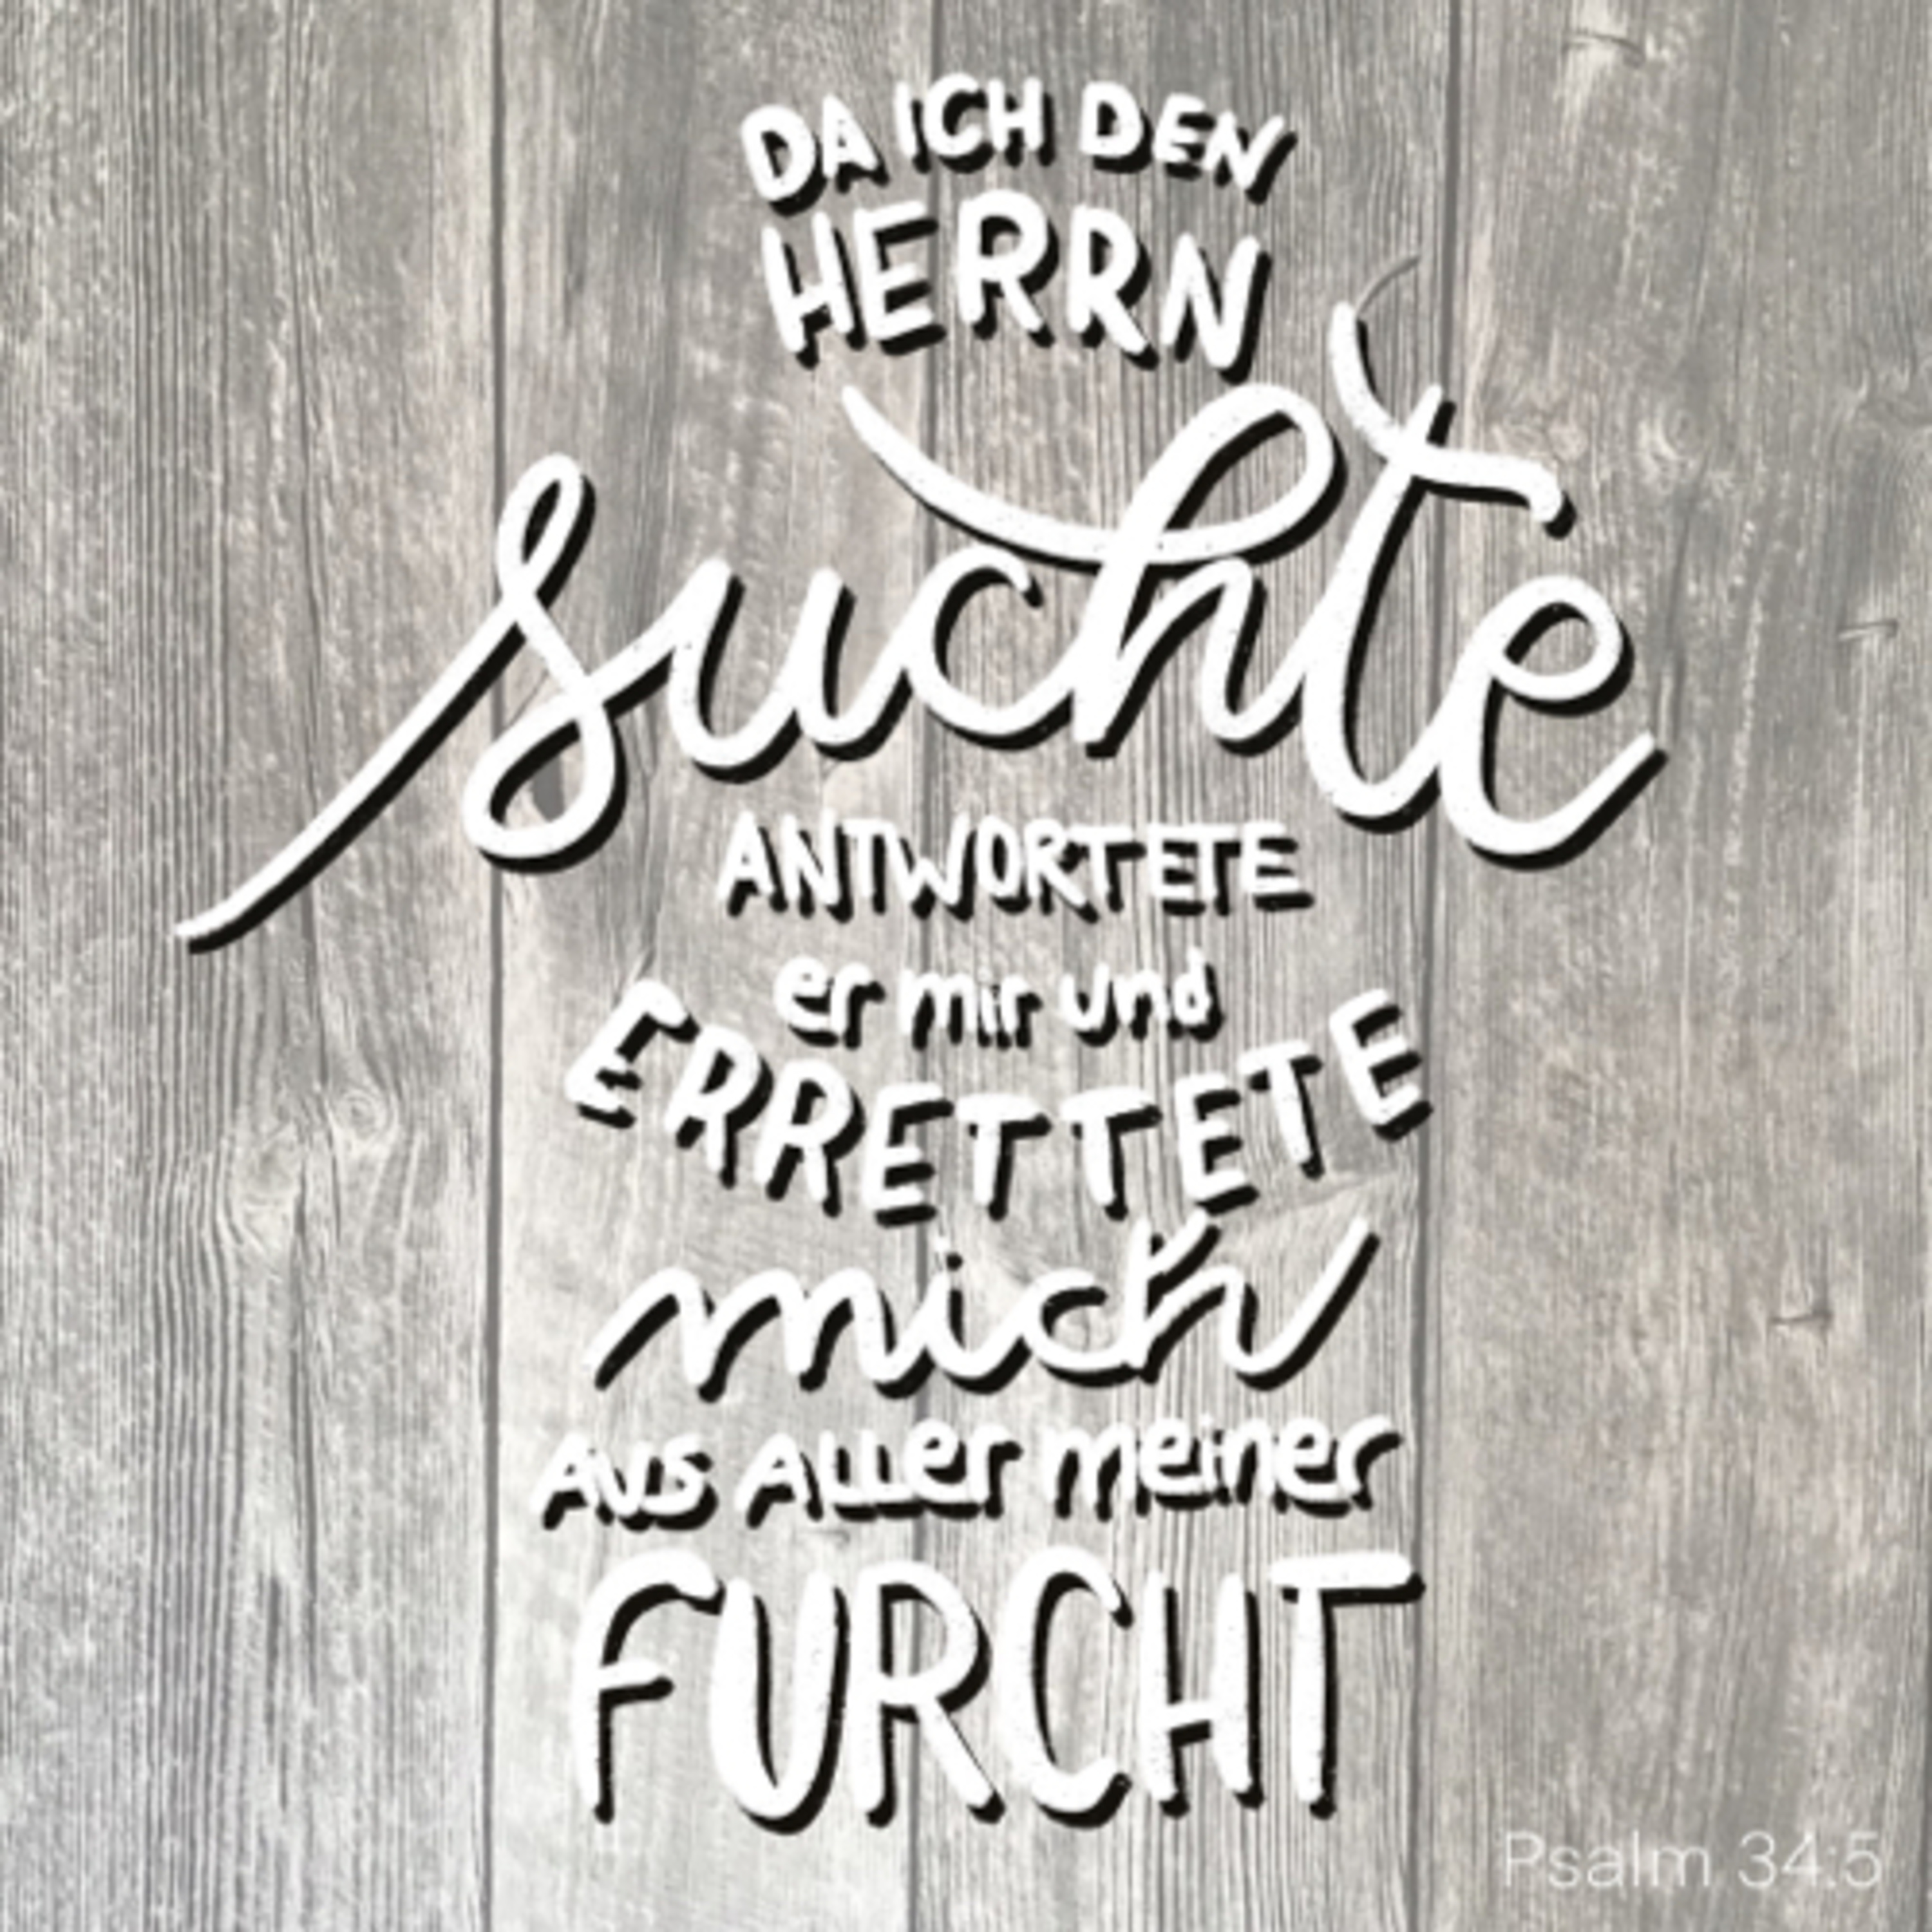 DA ICH DEN
HERRN
suchte
ANTWORTETE
er mir und
ERRETTETE
mich
AUS ALLer meiner
FURCHT
Psalm 34:5